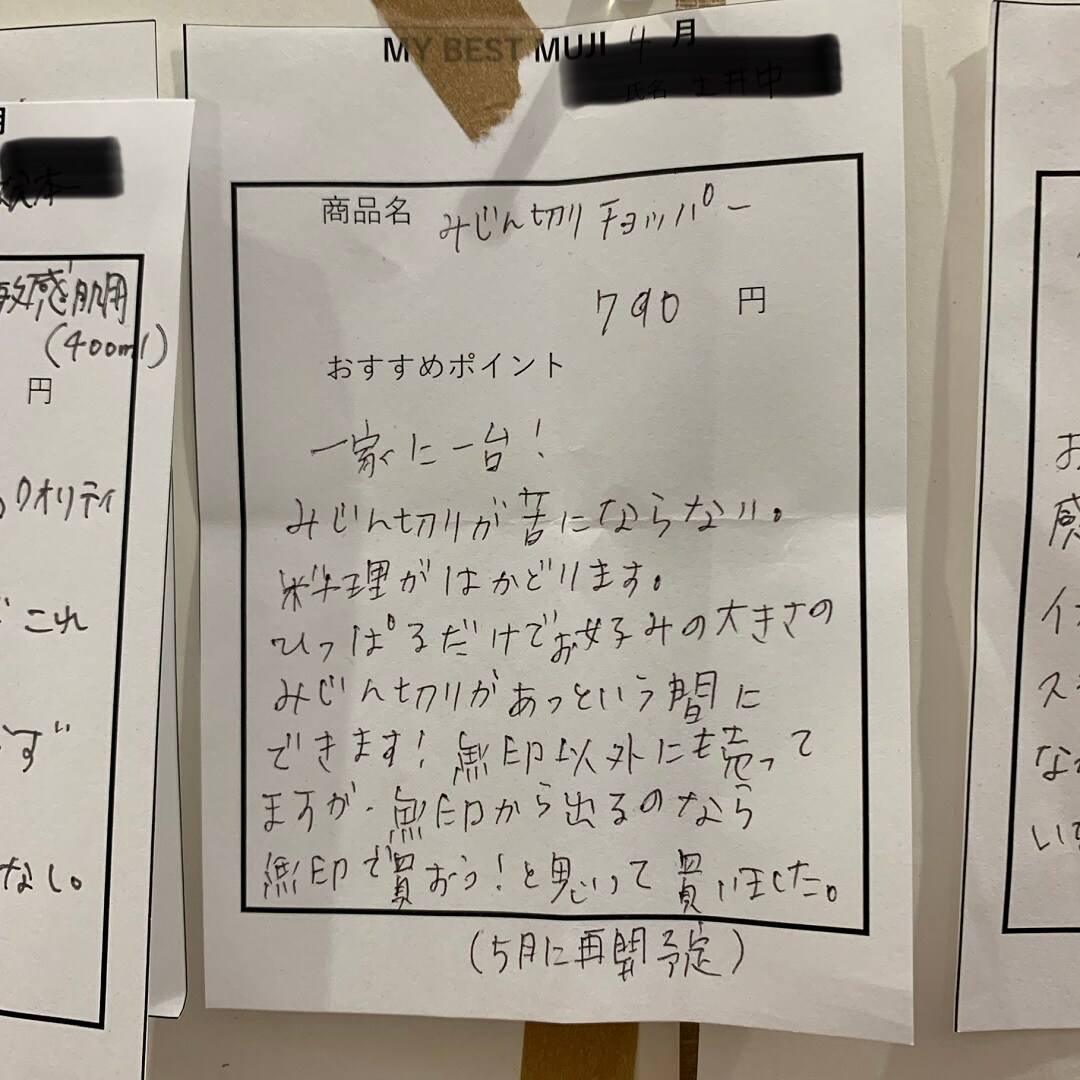 MY BEST MUJI 4月
商品名 みじん切りチョッパー
790 円
おすすめポイント
一家に一台!
みじん切りが苦にならない。
料理がはかどります。
ひっぱるだけでお好みの大きさの
みじん切りがあっという間に
できます! 無印以外にも売って
ますが、無印から出るのなら
無印で買おう!と思って買いました。
(5月に再開予定)
月
敏感肌用
(400ml)
円
クオリティ
これ
ず
なし。
お
感
イ
ス
な
い